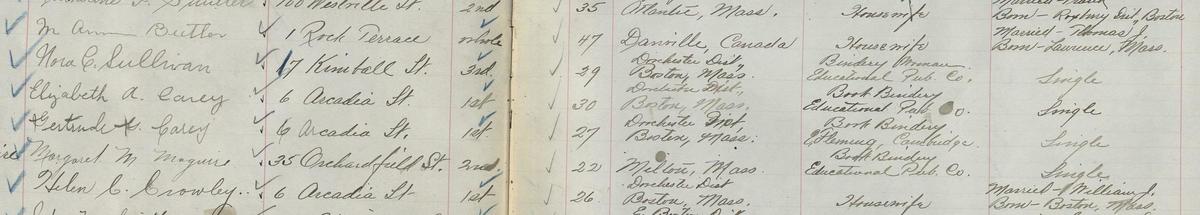 100 Westville St. 2nd 35 Atlantic, Mass. Housewife
Born - Roxbury Dist, Boston
M Ann Butler 1 Rock Terrace whole 47 Danville, Canada Housewife Married - Thomas J.
Born - Lawrence, Mass.
Nora C. Sullivan 17 Kimball St. 3rd 29 Dorchester Dist, Bindery Woman
Boston, Mass. Educational Pub. Co. Single
Elizabeth A. Carey 6 Arcadia St. 1st 30 Dorchester Dist, Book Bindery
Boston, Mass. Educational Pub Co. Single
Gertrude Carey 6 Arcadia St. 1st 27 Dorchester Dist Book Bindery
Boston, Mass. Fleming, Cambridge. Single
Margaret M Maguire 35 Orchardfield St. 2nd 22 Milton, Mass. Book Bindery
Educational Pub. Co. Single
Helen C. Crowley 6 Arcadia St 1st 26 Dorchester Dist Housewife Married - William J.
Boston, Mass. Born - Boston, Mass.